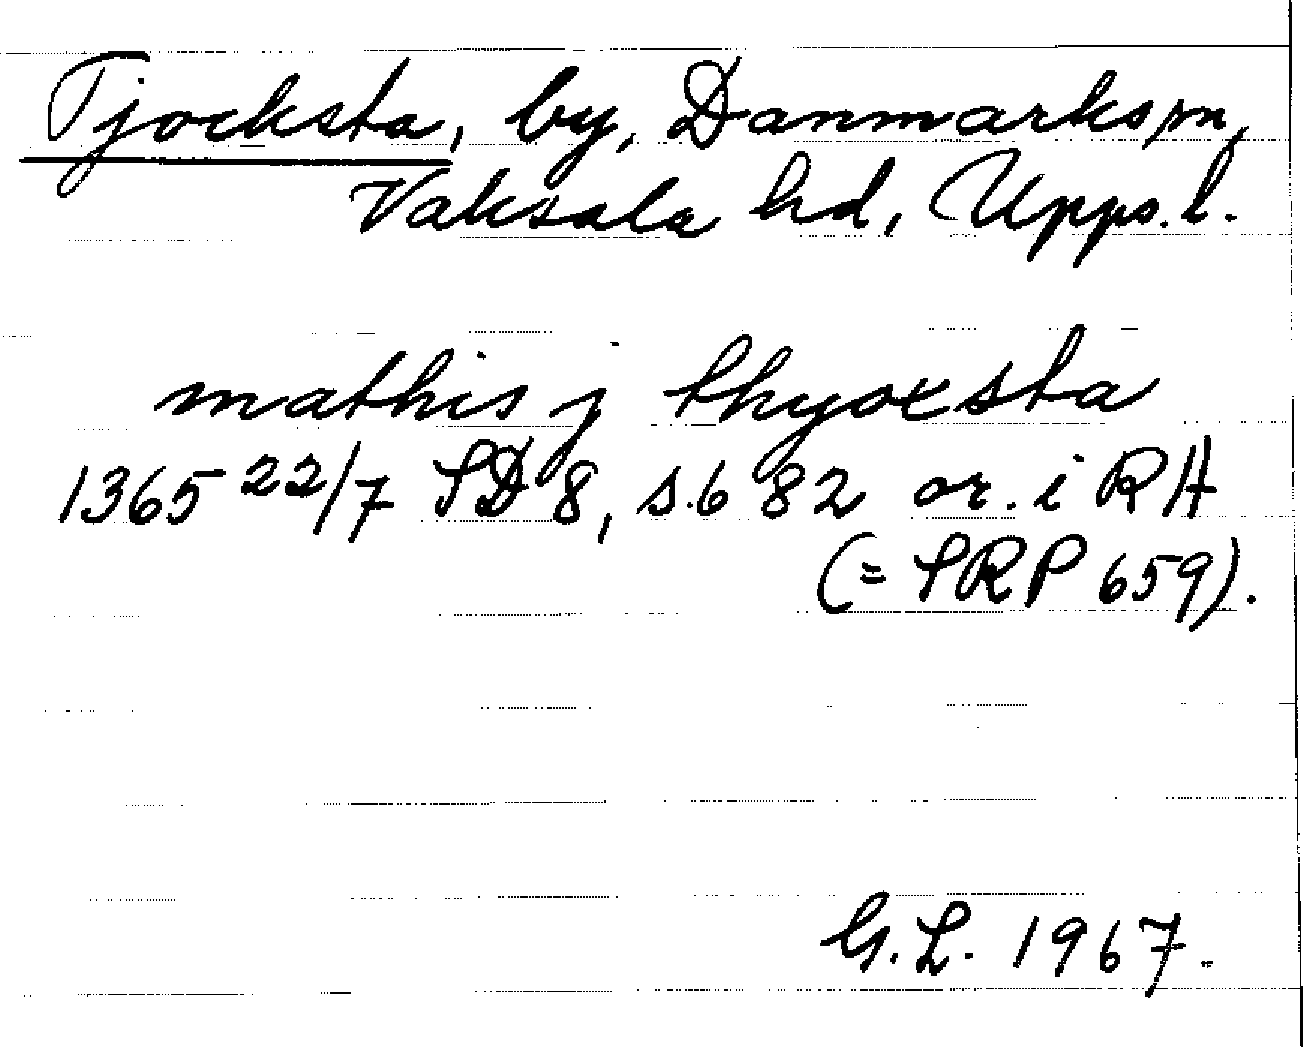 Tjocksta, by, Danmarks sn,
Vaksala hd, Upps. l.
mathis j thyoxsta
1365 22/7 SD 8, s. 682 or. i RA
(= SRP 659).
G.L. 1967.